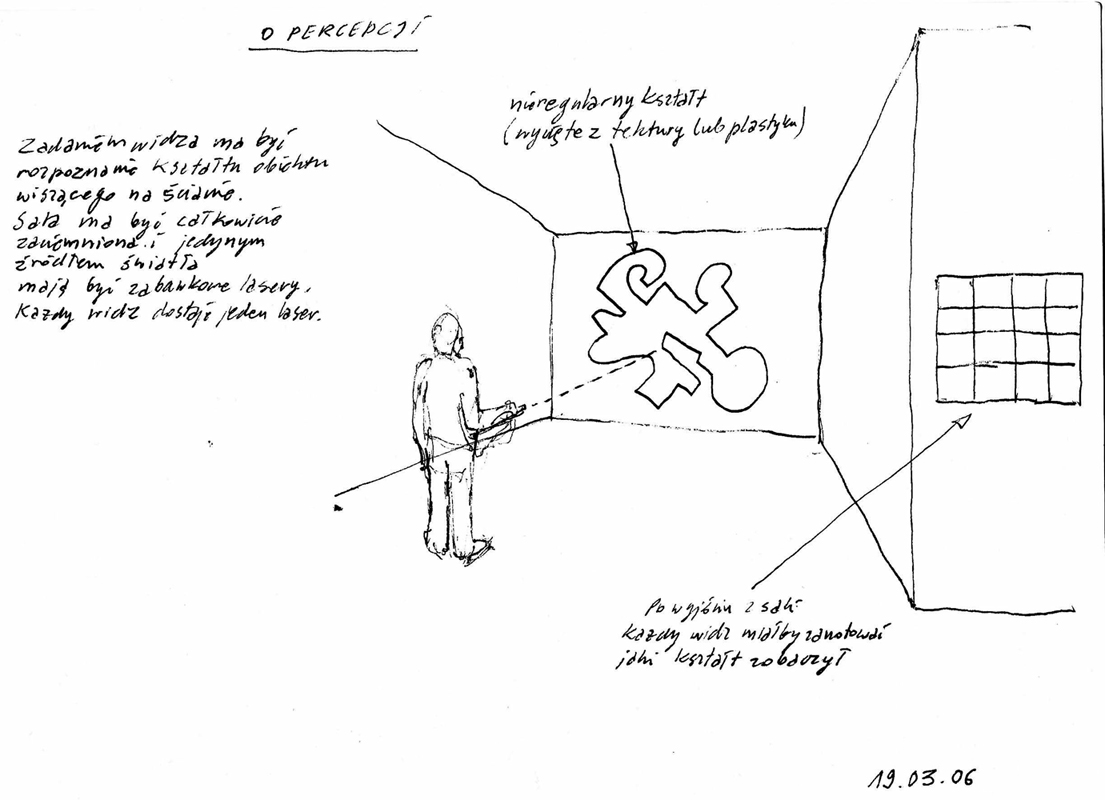 O PERCEPCJI
nieregularny kształt
(wycięte z tektury lub plastyku)
Zadaniem widza ma być
rozpoznanie kształtu obiektu
wiszącego na ścianie.
Sala ma być całkowicie
zaciemniona i jedynym
źródłem światła
mają być zabawkowe lasery.
Każdy widz dostaje jeden laser.
Po wyjściu z sali
każdy widz miałby zanotować
jaki kształt zobaczył
19.03.06